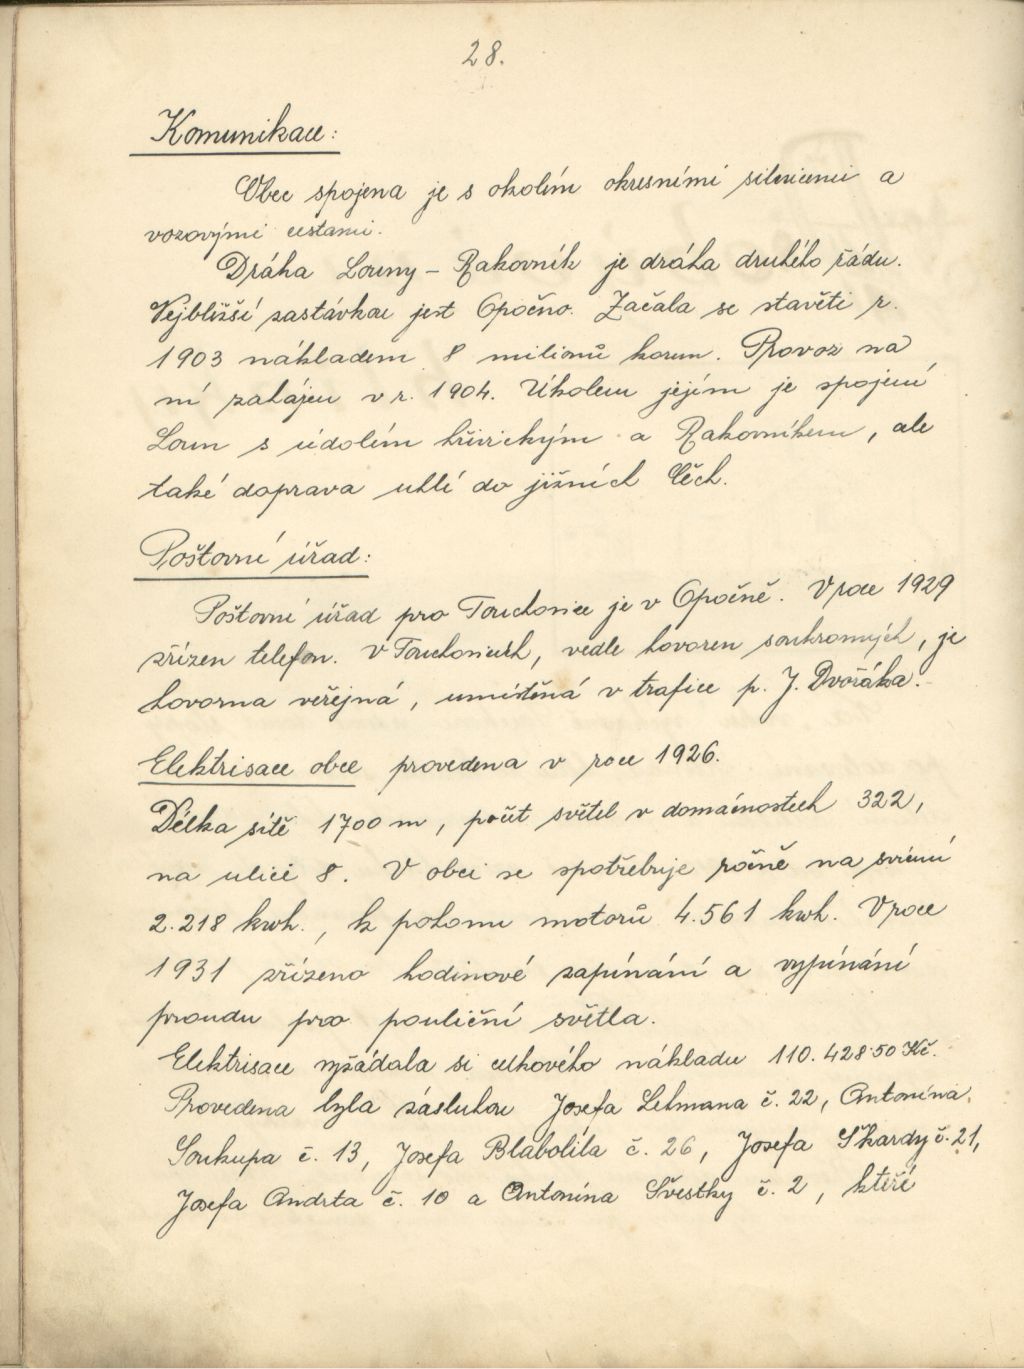 28.
Komunikace:
Obec spojena je s okolím okresními silnicemi a
vozovými cestami.
Dráha Louny – Rakovník je dráha druhého řádu.
Nejbližší zastávkou jest Opočno. Začala se stavěti r.
1903 nákladem 8 milionů korun. Provoz na
ní zahájen v r. 1904. Úkolem jejím je spojení
Loun s údolím křivickým a Rakovníkem, ale
také doprava uhlí do jižních Čech.
Poštovní úřad:
Poštovní úřad pro Touchovice je v Opočně. V roce 1929
zřízen telefon. V Touchovicích, vedle hovoren soukromých, je
hovorna veřejná, umístěná v trafice p. J. Dvořáka.
Elektrisace obce provedena v roce 1926.
Délka sítě 1700 m, počet světel v domácnostech 322,
na ulici 8. V obci se spotřebuje ročně na svícení
2.218 kwh., k pohonu motorů 4.561 kwh. V roce
1931 zřízeno hodinové zapínání a vypínání
proudu pro pouliční světla.
Elektrisace vyžádala si celkového nákladu 110.428·50 Kč.
Provedena byla zásluhou Josefa Lehmana č. 22, Antonína
Soukupa č. 13, Josefa Blabolila č. 26, Josefa Škardy č. 21,
Josefa Andrta č. 10 a Antonína Švestky č. 2, kteří